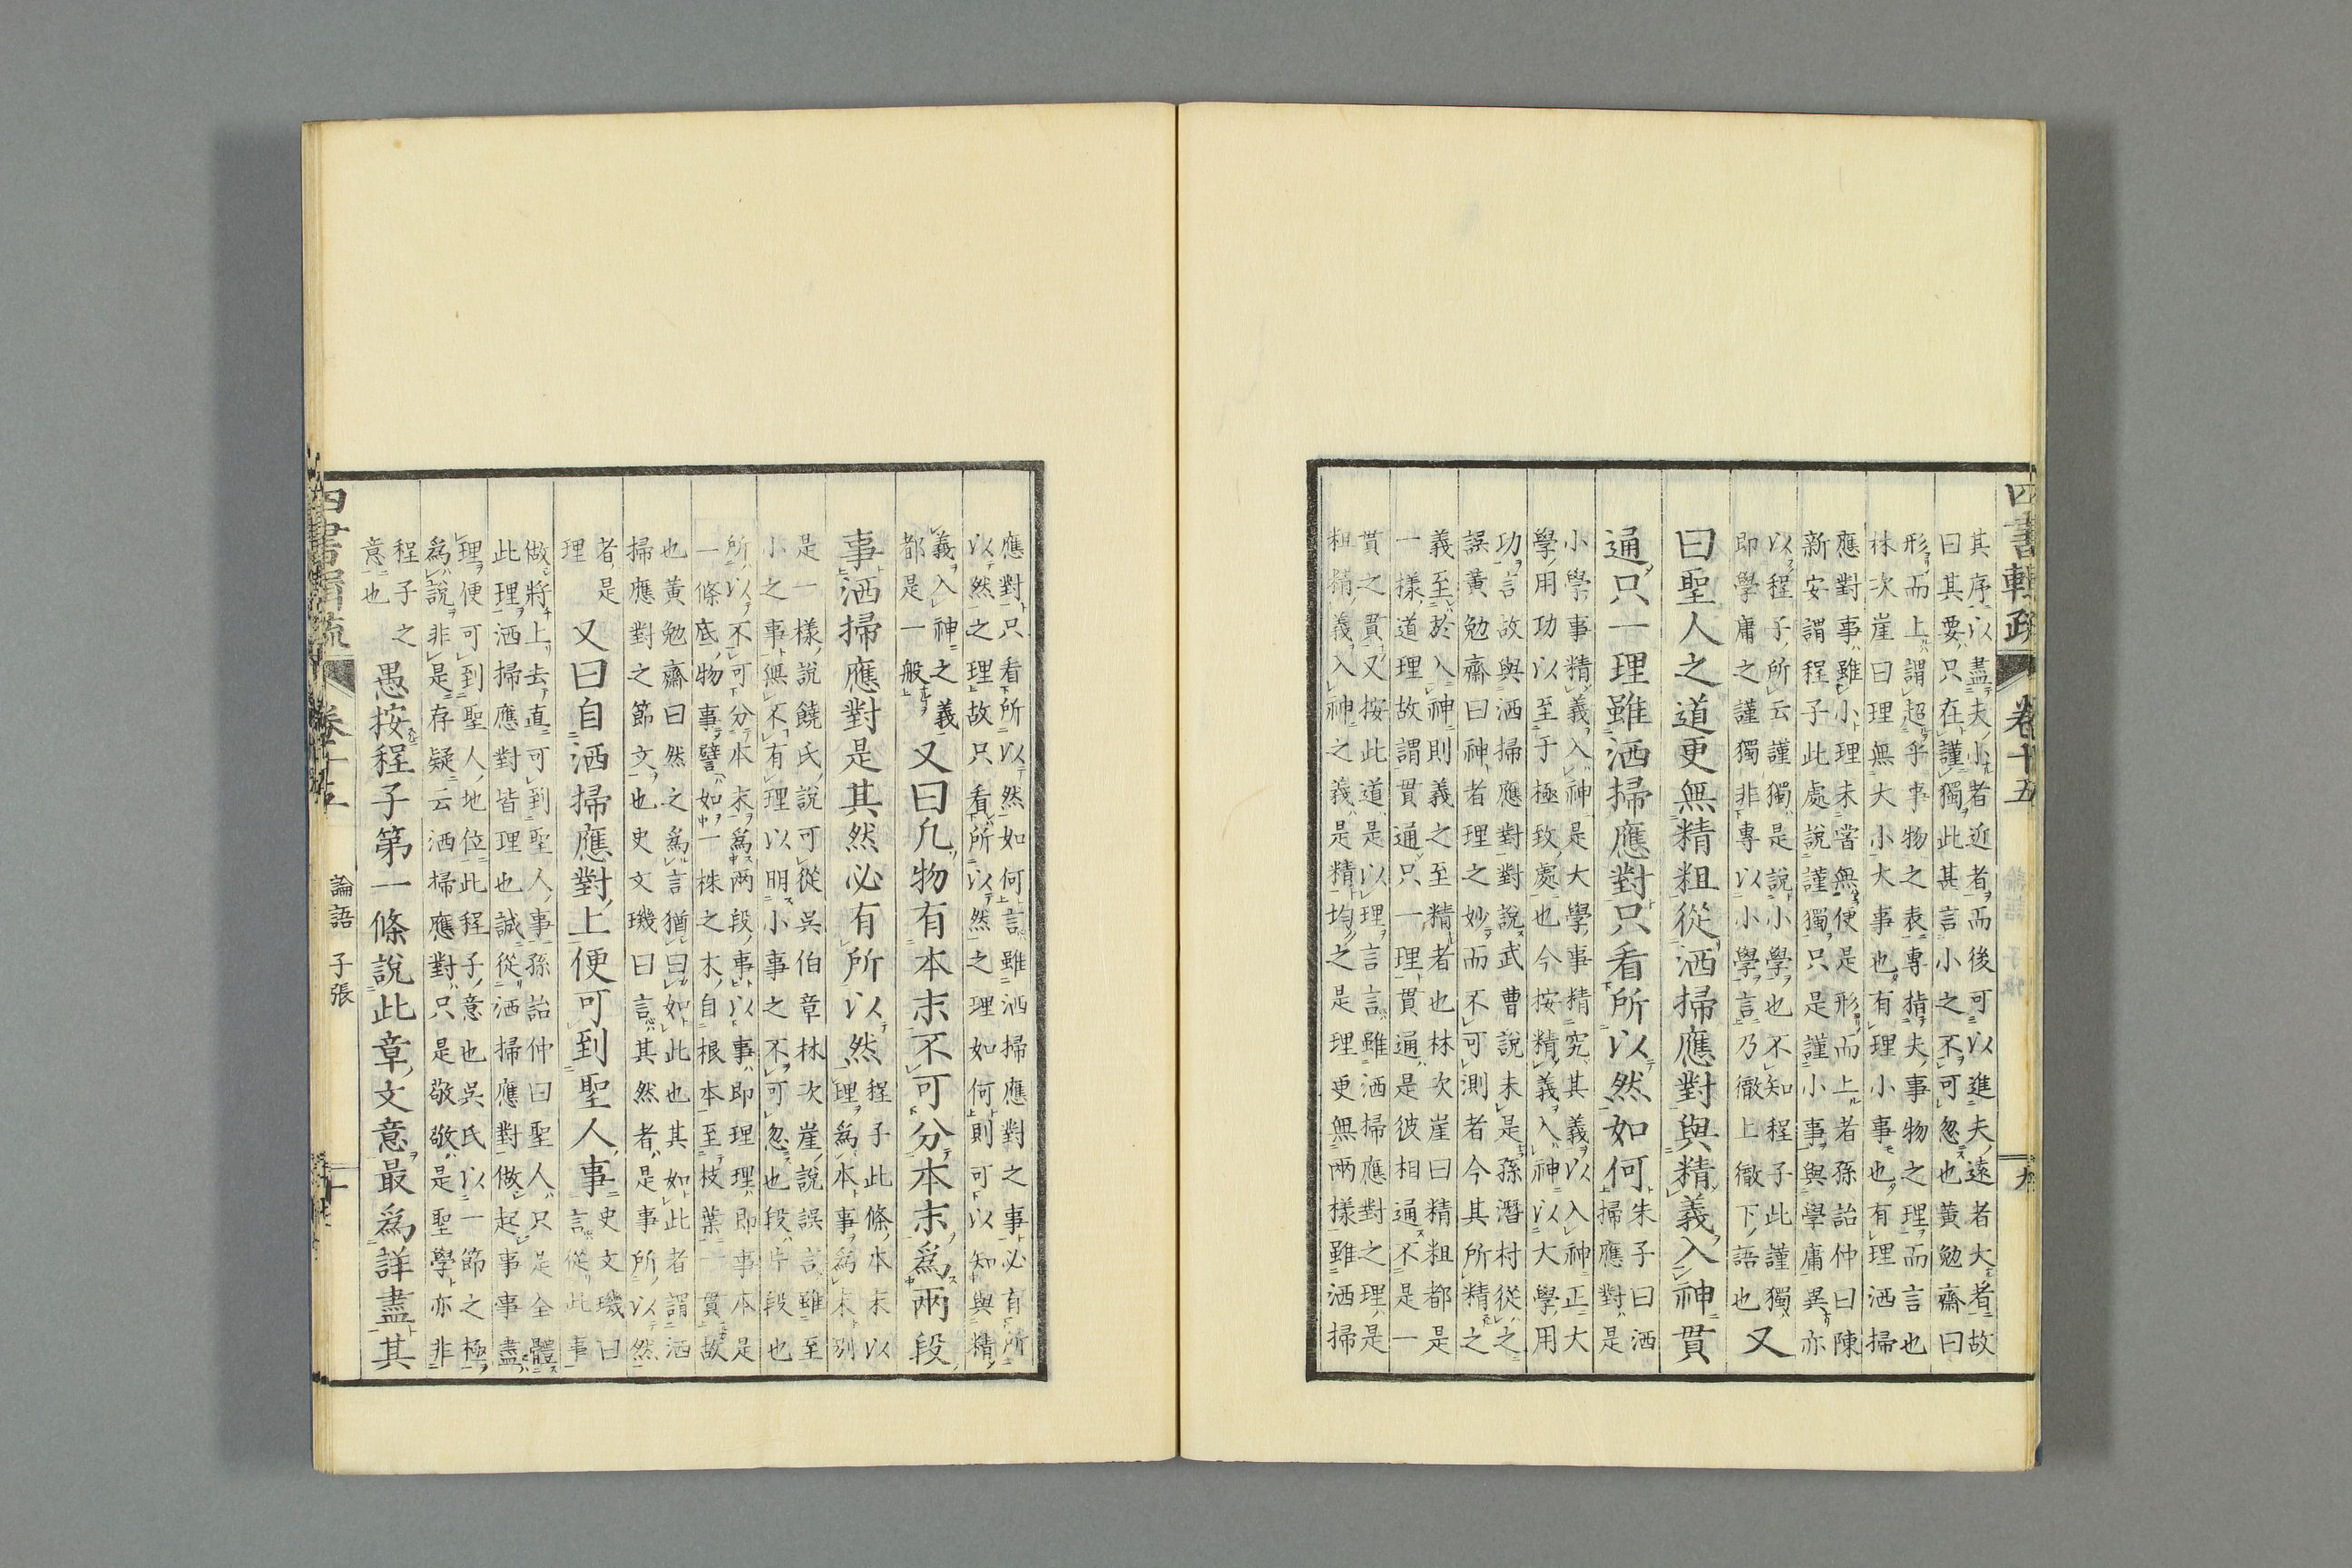 四書輯疏
卷十五
九
其序以盡夫小者近者而後可以進夫遠者大者故
曰其要只在謹獨此甚言小之不可忽也黃勉齋曰
形而上謂超乎事物之表專指夫事物之理而言也
林次崖曰理無大小大事也有理小事也有理洒掃
應對事雖小理未嘗無便是形而上者孫詒仲曰陳
新安謂程子此處說謹獨只是謹小事與學庸異亦
以程子所云謹獨是說小學也不知程子此謹獨
即學庸之謹獨非專以小學言乃徹上徹下語也又
曰聖人之道更無精粗從洒掃應對與精義入神貫
通只一理雖洒掃應對只看所以然如何
朱子曰洒
掃應對是
小學事精義入神是大學事精究其義以入神正大
學用功以至于極致處也今按精義入神以大學用
功言故與洒掃應對對說武曹說未是孫潛村從之
誤黃勉齋曰神者理之妙而不可測者今其所精之
義至於入神則義之至精者也林次崖曰精粗都是
一樣道理故謂貫通只一理貫通是彼相通不是一
貫之貫又按此道是以理言言雖洒掃應對之理是
粗精義入神之義是精均之是理更無兩樣雖洒掃
應對只看所以然如何言雖洒掃應對之事必有所
以然之理故只看所以然之理如何則可以知與精
義入神之義
都是一般
又曰凡物有本末不可分本末爲兩段
事洒掃應對是其然必有所以然
程子此條本末以
理爲本事爲末別
是一樣說饒氏說可從吳伯章林次崖說誤言雖至
小之事無不有理以明小事之不可忽也段片段也
所以不可分本末爲兩段事以事即理理即事本是
一條底物事譬如一株之木自根本至枝葉一貫故
也黃勉齋曰然之爲言猶曰如此也其如此者謂洒
掃應對之節文也史文璣曰言其然者是事所以然
者是
理
又曰自洒掃應對上便可到聖人事
史文璣曰
言從此事
做將上去直可到聖人事孫詒仲曰聖人只是全體
此理洒掃應對皆理也誠從洒掃應對做起事事盡
理便可到聖人地位此程子意也吳氏以一節之極
爲說非是存疑云洒掃應對只是敬敬是聖學亦非
程子之
意也
愚按程子第一條說此章文意最爲詳盡其
四書輯疏
卷十五
論語 子張
十